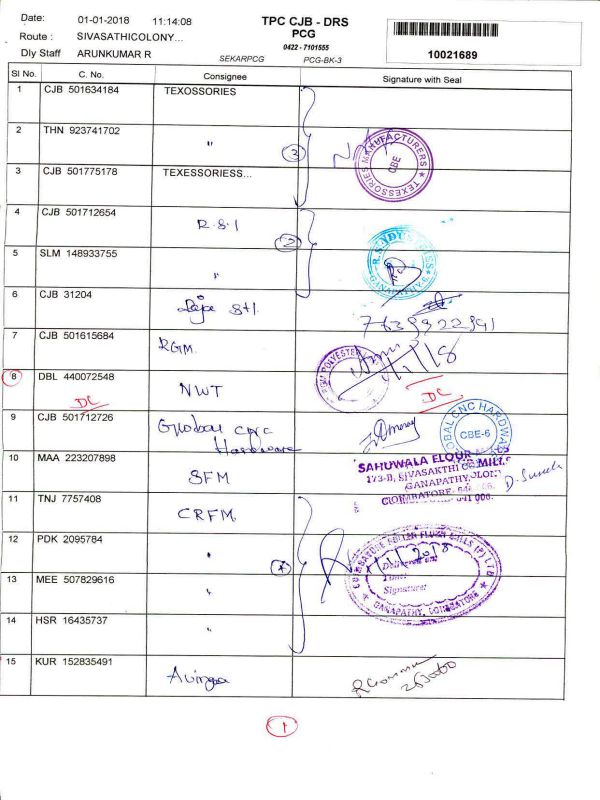 Date: 01-01-2018 11:14:08 TPC CJB - DRS
PCG
Route : SIVASATHICOLONY... 0422 - 7101555
Dly Staff ARUNKUMAR R SEKARPCG PCG-BK-3 10021689
Sl No. C. No. Consignee Signature with Seal
1 CJB 501634184 TEXOSSORIES
2 THN 923741702 "
3
TEXESSORIES MANUFACTURERS
CBE
3 CJB 501775178 TEXESSORIESS...
4 CJB 501712654 R.S.I
2
5 SLM 148933755 "
6 CJB 31204 Stl
7639922991
7 CJB 501615684 RGM.
POLYESTER
8 DBL 440072548 NWT
DC DC
9 CJB 501712726 Global cnc
Hardware
GLOBAL CNC HARDWARE
CBE-6
10 MAA 223207898 SFM
SAHUWALA FLOUR MILLS
173-B, SIVASAKTHI COLONY
GANAPATHY,
COIMBATORE - 641 006.
11 TNJ 7757408 CRFM
12 PDK 2095784 "
COIMBATORE ROLLER FLOUR MILLS (P) LTD
Delivered on:
Time:
Signature:
GANAPATHY, COIMBATORE
13 MEE 507829616 "
14 HSR 16435737 "
15 KUR 152835491
1